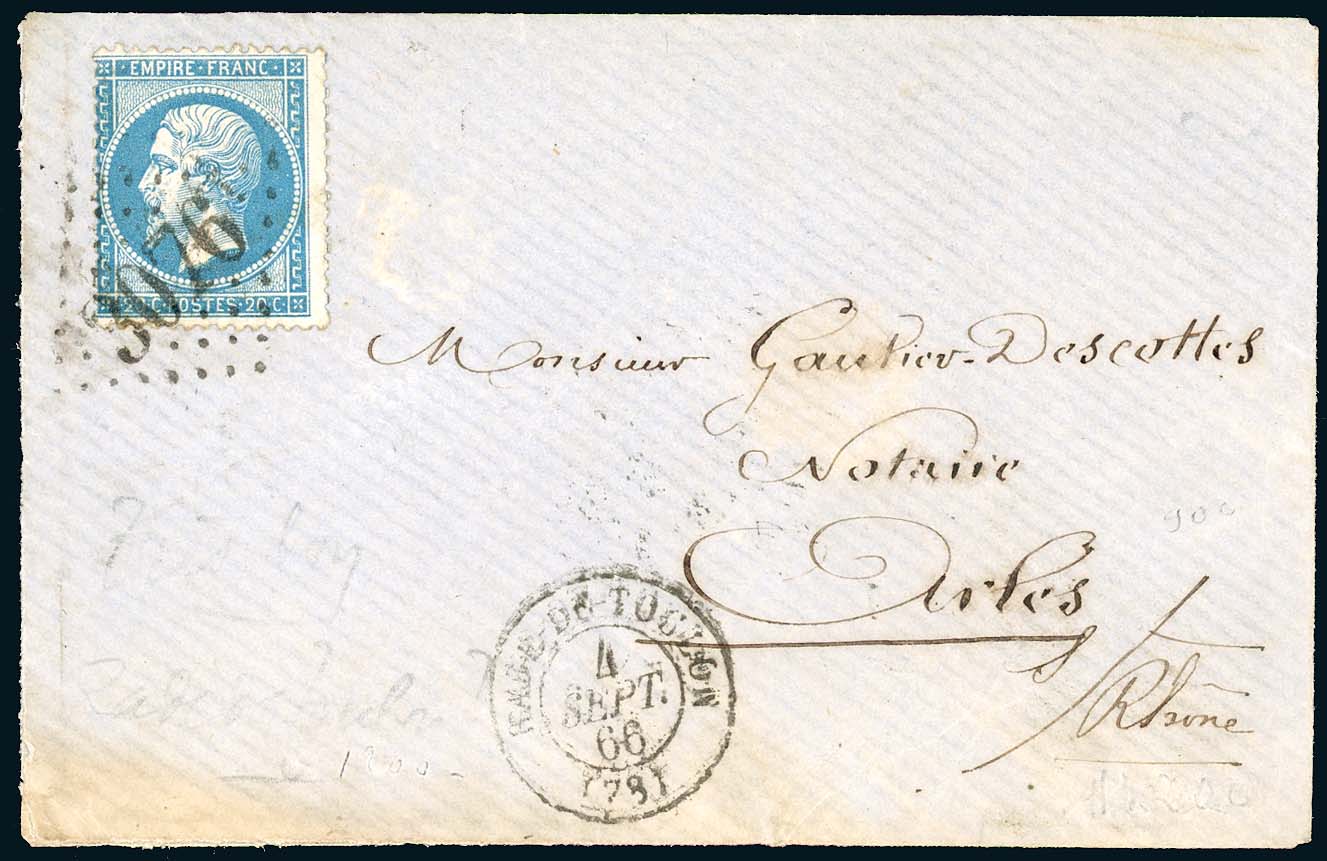 EMPIRE · FRANC ·
20 · C · POSTES · 20 · C
3076
Monsieur Gautier-Descottes
Notaire
Arles
s/ Rhône
900
RADE-DE-TOULON
4
SEPT.
66
(78)
1200-